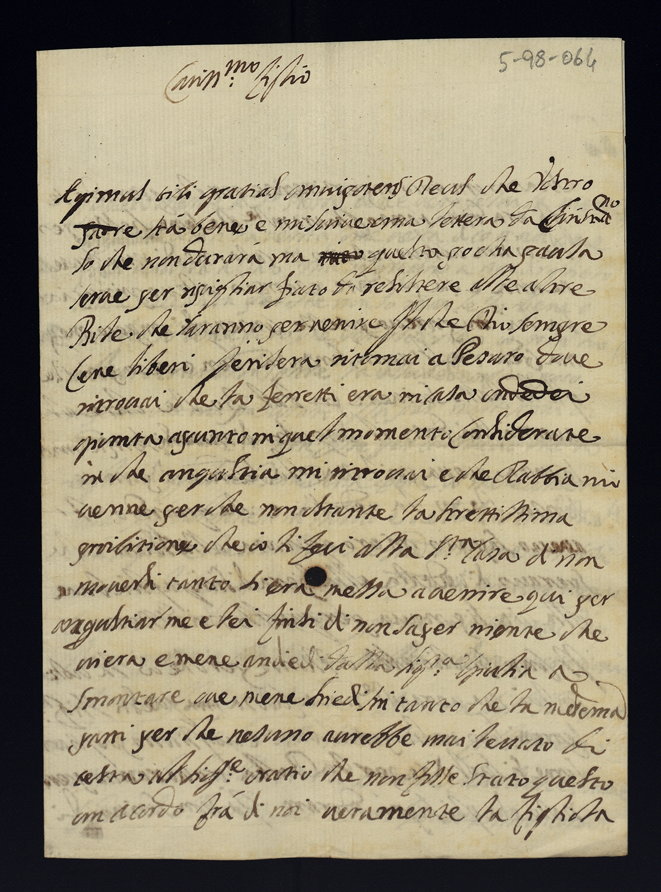 5-98-064
Cariss.mo Figlio
Agimus tibi gratias omnipotens Deus che Vostro
Padre stà bene e mi scrive una lettera da
so che non durarà ma questa pocha pausa
serve per ripigliar fiato da resistere alle altre
Bile che saranno per venire che Dio sempre
cene liberi Jerisera ritornai a Pesaro dove
ritrovai che la ferretti era in casa
gionta apunto in quel momento Considerate
in che angustia mi ritrovai e che Rabbia mi
venne perche non ostante la strettissima
proibitione che io li feci alla S.ra Casa di non
moversi tanto si era messa a venire qui per
angustiar me e lei finsi di non saper niente che
viera e mene andiedi dalla Sig.ra a
smontare ove mene stiedi sin tanto che la medema
partì per che nesuno avrebbe mai levato di
testa al Sig.re oratio che non fosse stato questo
un acordo frà di noi veramente la figliola